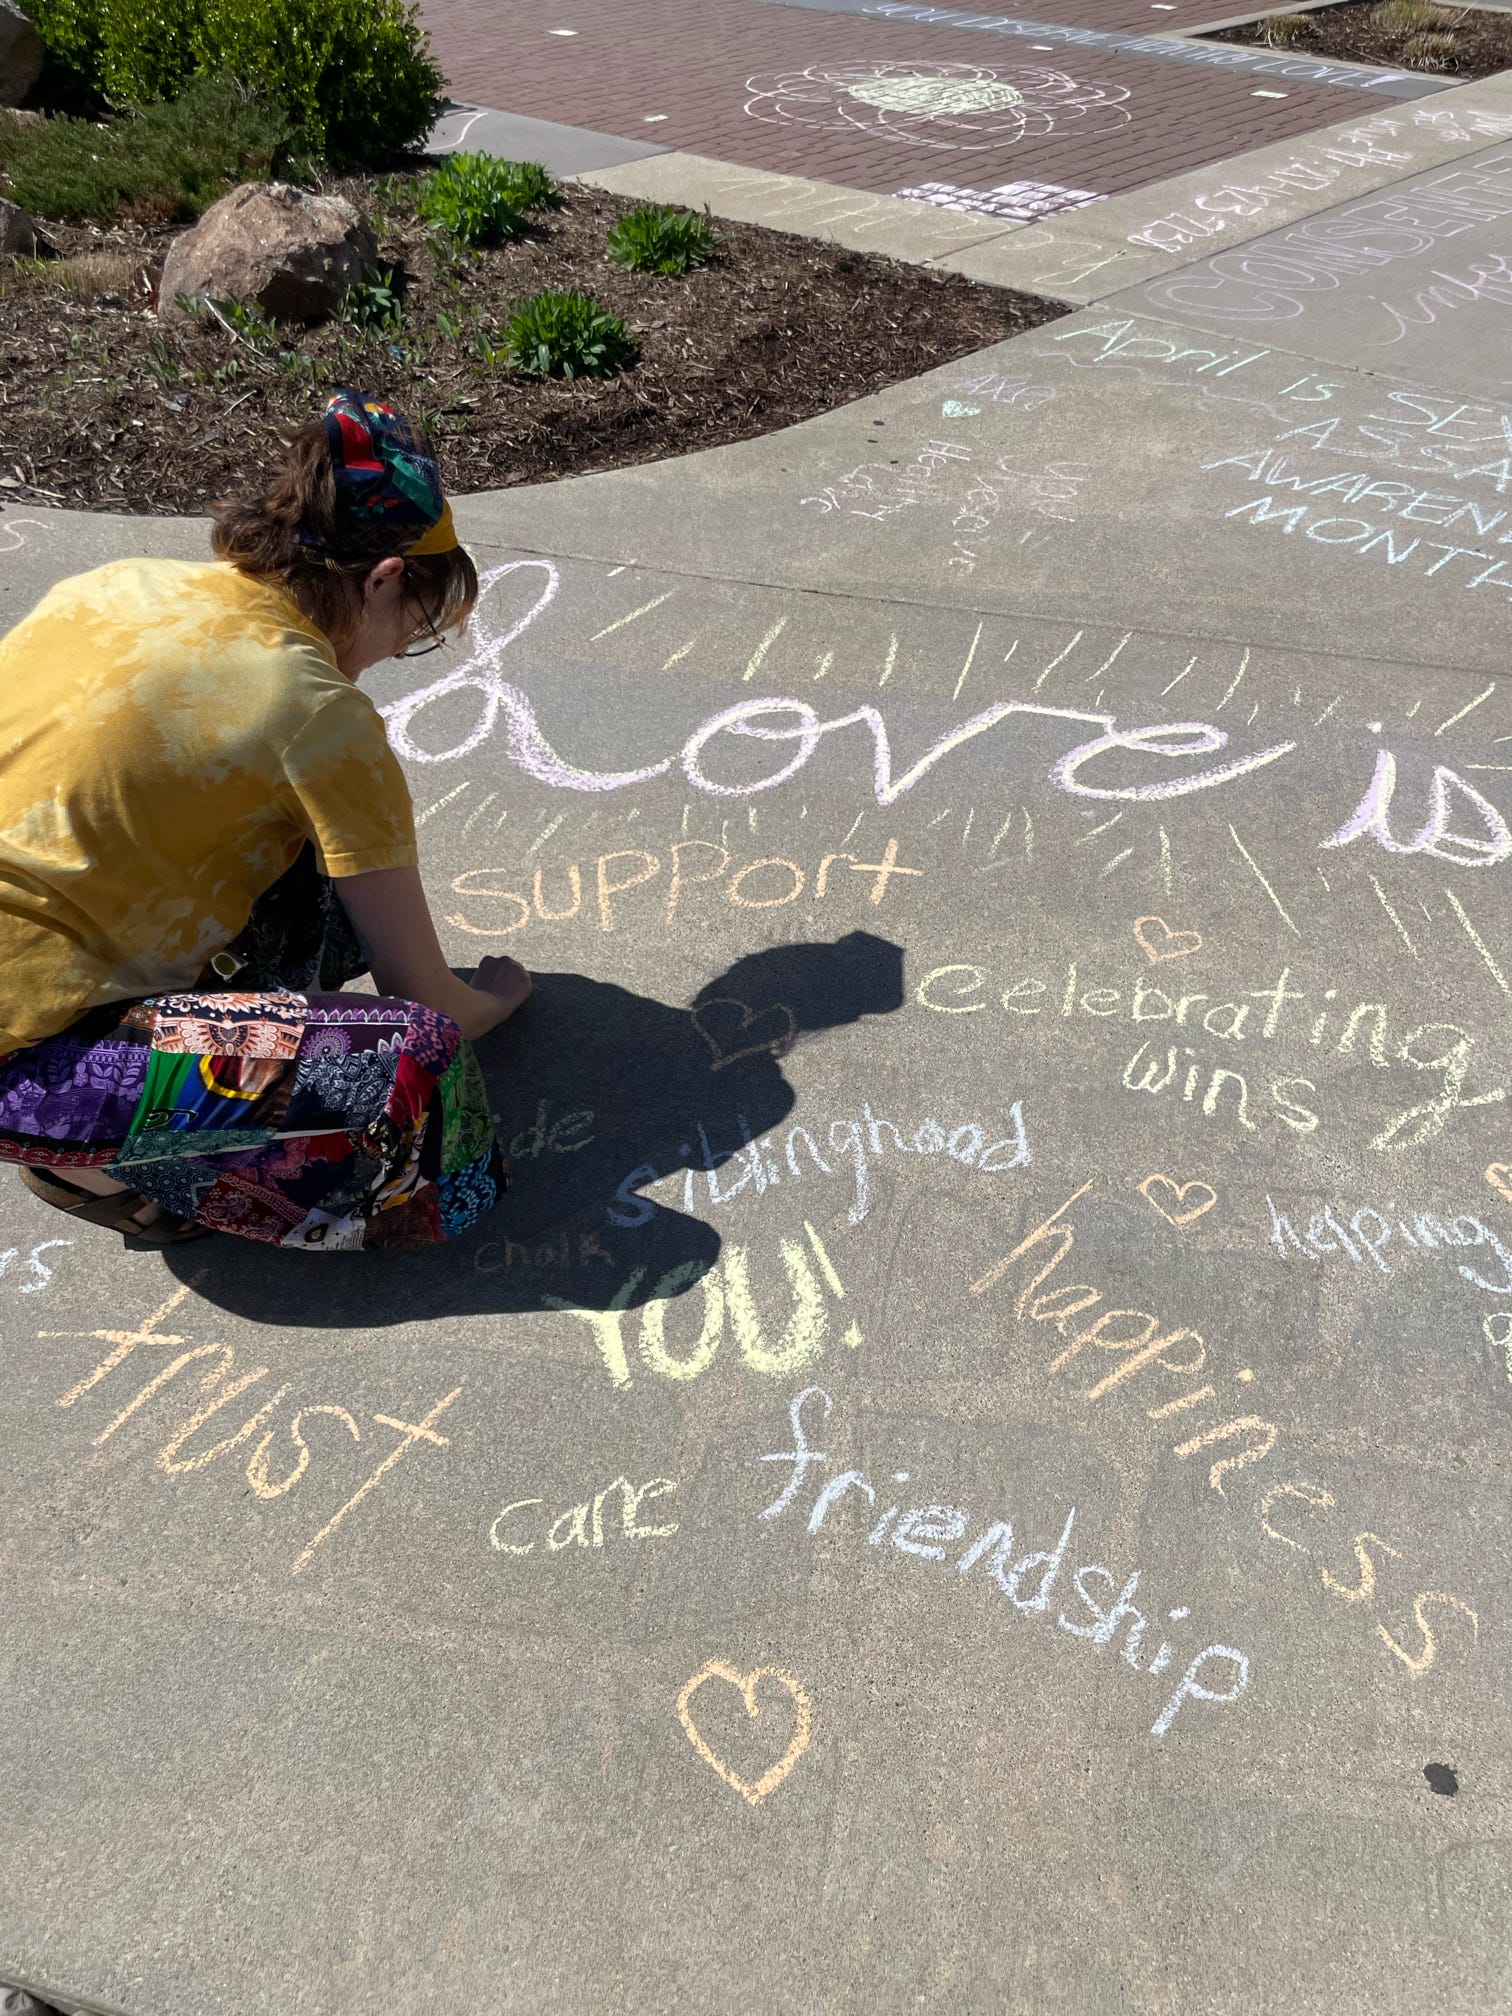 YOU DESERVE HEALTHY LOVE!
CONSENT
April is SEX
ASSA
AWAREN
MONTH
AXΩ
You
Deserve
Healthy
Love
Love is
support
celebrating
wins
siblinghood
chalk
YOU!
happiness
helping
trust
care
friendship